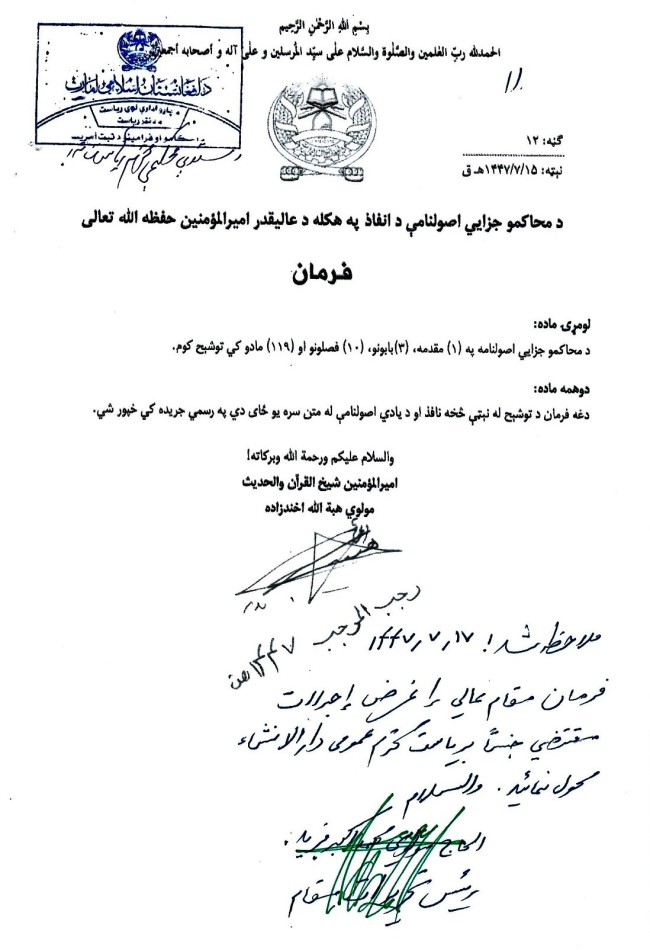 بِسْمِ اللهِ الرَّحْمٰنِ الرَّحِيْمِ
الحمدلله ربّ العٰلمين والصَّلٰوة والسَّلام علٰى سيِّد المُرسلين و علٰى آله و أصحابه أجمعين
د افغانستان اسلامي امارت
گڼه: ۱۲
نېټه: ۱۴۴۷/۷/۱۵هـ ق
د محاکمو جزايي اصولنامې د انفاذ په هکله د عاليقدر اميرالمؤمنين حفظه الله تعالی
فرمان
لومړۍ ماده:
د محاکمو جزايي اصولنامه په (۱) مقدمه، (۳)بابونو، (۱۰) فصلونو او (۱۱۹) مادو کې توشېح کوم.
دوهمه ماده:
دغه فرمان د توشېح له نېټې څخه نافذ او د يادې اصولنامې له متن سره يو ځای دې په رسمي جريده کې خپور شي.
والسلام عليکم ورحمة الله وبرکاته!
اميرالمؤمنين شيخ القرآن والحديث
مولوي هبة الله اخندزاده
رجب المرجب ۱۴۴۷
ملاحظه شد! ۱۴۴۷٫۷٫۱۷
فرمان مقام عالي را غرض إجراات
مقتضي جنساً برياست محترم عمومی دارالانشاء
محول نمائيد. والسلام
الحاج
رئيس مقام